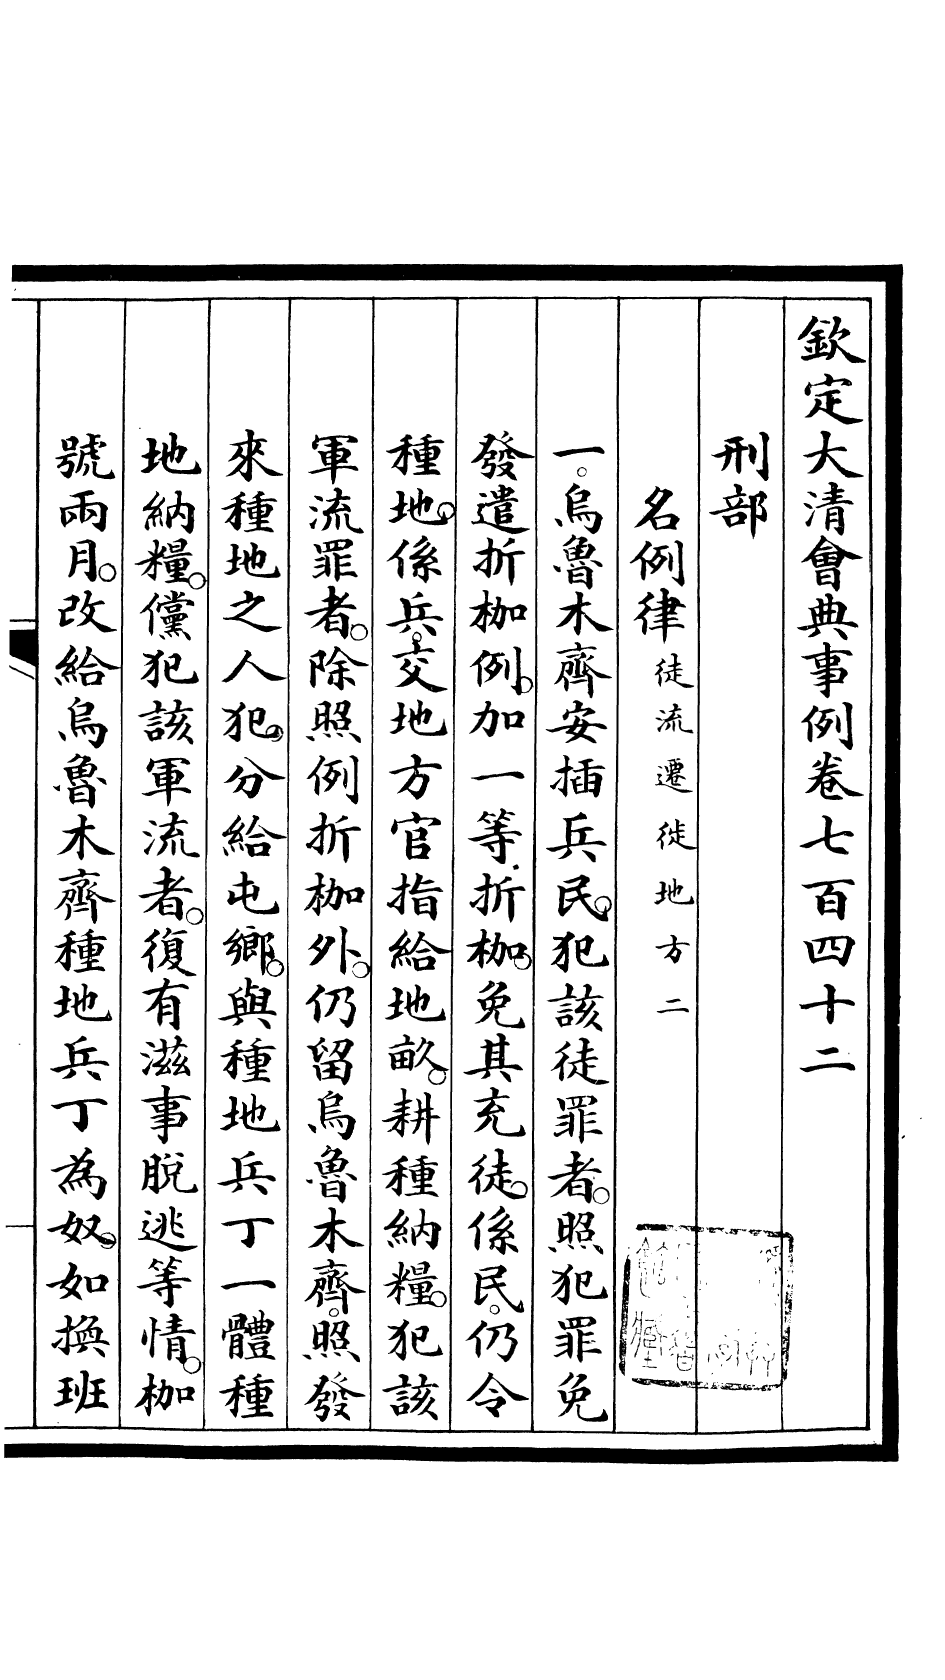 欽定大清會典事例卷七百四十二
刑部
名例律徒流遷徙地方二
一。烏魯木齊安插兵民。犯該徒罪者。照犯罪免
發遣折枷例。加一等折枷。免其充徒。係民。仍令
種地。係兵。交地方官指給地畝。耕種納糧。犯該
軍流罪者。除照例折枷外。仍留烏魯木齊。照發
來種地之人犯。分給屯鄉。與種地兵丁一體種
地納糧。儻犯該軍流者。復有滋事脫逃等情。枷
號兩月。改給烏魯木齊種地兵丁為奴。如換班